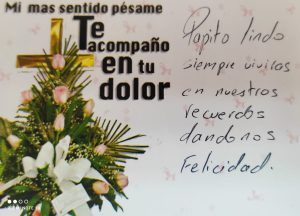 Mi mas sentido pésame
Te
acompaño
en tu
dolor
Papito lindo
siempre viviras
en nuestros
recuerdos
dandonos
Felicidad.